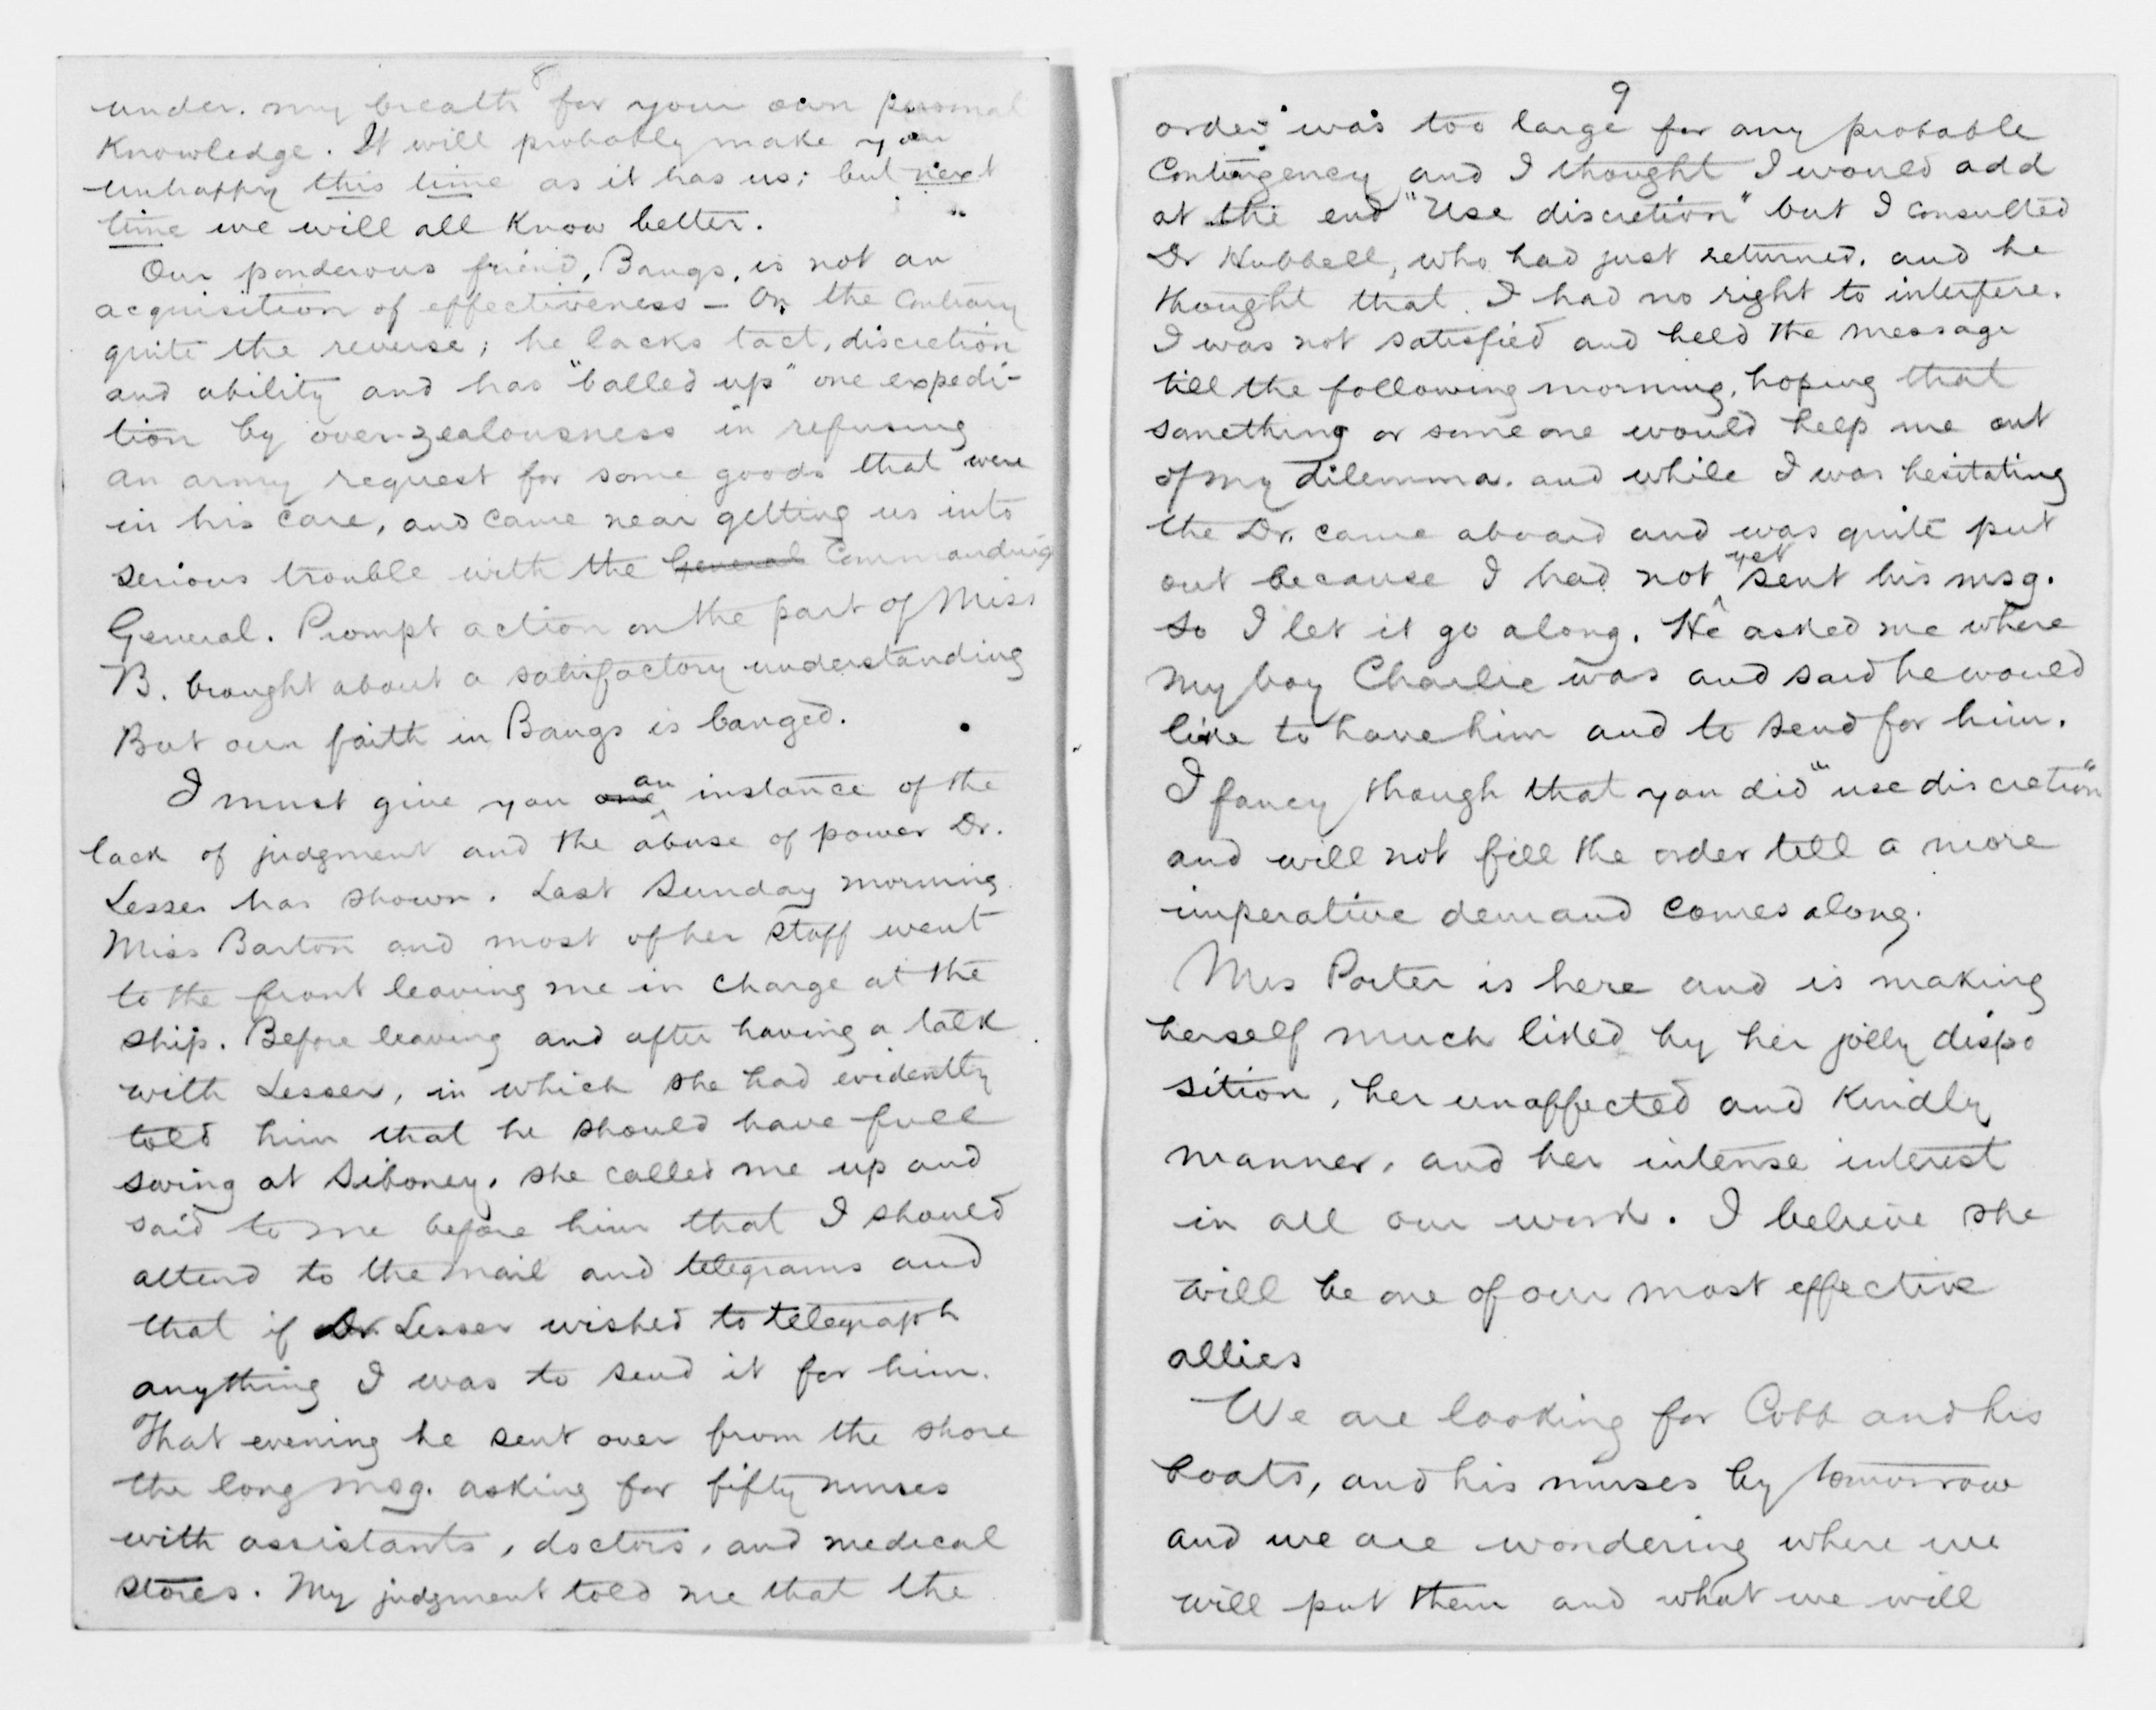 8
under. my breath for your own personal
Knowledge. It will probably make you
unhappy this time as it has us; but next
time we will all Know better.
Our ponderous friend, Bangs, is not an
acquisition of effectiveness – On the Contrary
quite the reverse; he lacks tact, discretion
and ability and has "balled up" one expedi-
tion by over-zealousness in refusing
an army request for some goods that were
in his care, and came near getting us into
serious trouble with the General Commanding
General. Prompt action on the part of Miss
B. brought about a satisfactory understanding
But our faith in Bangs is banged.
I must give you one an instance of the
lack of judgment and the abuse of power Dr.
Lesser has shown. Last Sunday morning
Miss Barton and most of her staff went
to the front leaving me in charge at the
ship. Before leaving and after having a talk
with Lesser, in which she had evidently
told him that he should have full
swing at Siboney, she called me up and
said to me before him that I should
attend to the mail and telegrams and
that if Dr Lesser wished to telegraph
anything I was to send it for him.
That evening he sent over from the shore
the long msg. asking for fifty nurses
with assistants, doctors, and medical
stores. My judgment told me that the
9
order was too large for any probable
Contingency and I thought I would add
at the end "Use discretion" but I consulted
Dr Hubbell, who had just returned, and he
thought that I had no right to interfere.
I was not satisfied and held the message
till the following morning, hoping that
something or some one would help me out
of my dilemma. and while I was hesitating
the Dr. came aboard and was quite put
out because I had not yet sent his msg.
so I let it go along. He asked me where
my boy Charlie was and said he would
like to have him and to send for him.
I fancy though that you did "use discretion"
and will not fill the order till a more
imperative demand comes along.
Mrs Porter is here and is making
herself much liked by her jolly dispo
sition, her unaffected and Kindly
manner, and her intense interest
in all our work. I believe she
will be one of our most effective
allies
We are looking for Cobb and his
boats, and his nurses by tomorrow
and we are wondering where we
will put them and what we will